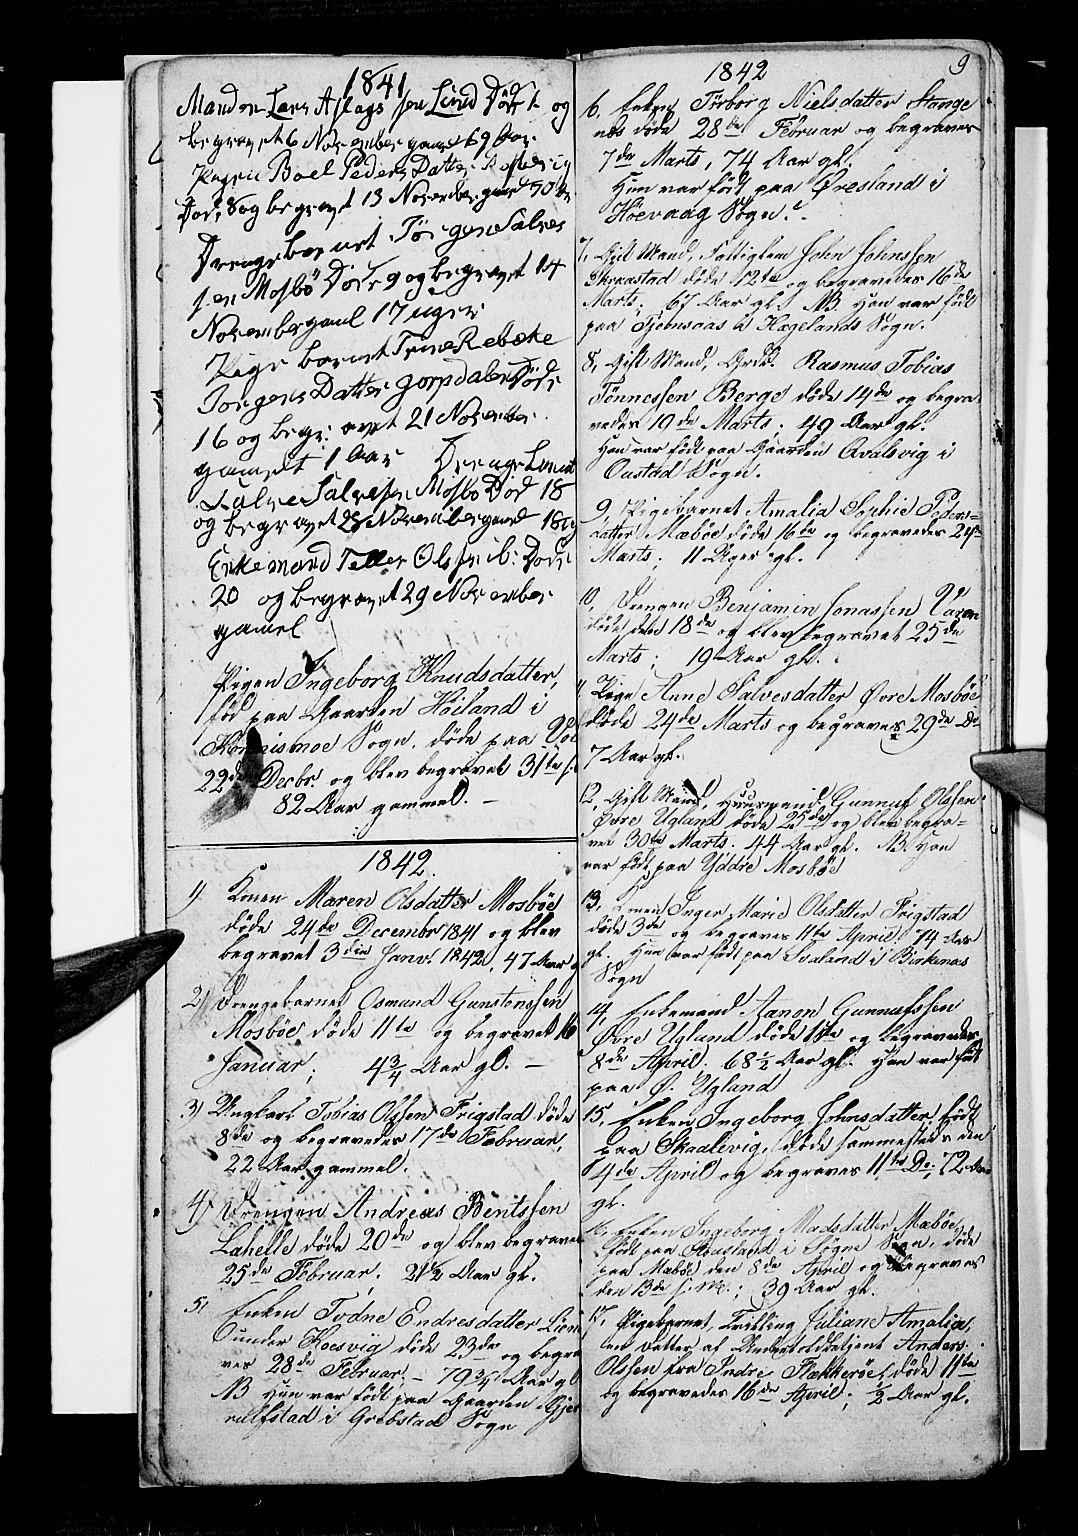 1841
Manden Lars Aslagssen Lund Død 1 og
begravet 6 November gamel 69 Aar
Pigen Boel Peders Datter
Død 8 og begravet 13 November gamel 70 Aar
Drengebarnet Jørgen Salves
sen Mosbø Døde 9 og begravet 14
November gamel 17 uger
Pige barnet Trine Rebæke
Jørgens Datter Døde
16 og begravet 21 November
gamelt 1 Aar Drenge barnet
Salve Salvesen Mosbø Død 18
og begravet 28 November gamel
Enkemand Telles Olssen Døde
20 og begravet 29 November
gamel
Pigen Ingeborg Knudsdatter,
fød paa Gaarden Høiland i
Sogn, døde paa
22de Decbr. og blev begravet 31te
82 Aar gammel. –
1842.
1) Konen Maren Olsdatter Mosbøe
døde 24de Decembr 1841 og blev
begravet 3die Janv. 1842, 47 Aar
2) Drengebarnet Osmund Gunstenssen
Mosbøe døde 11te og begravet 16
Januar; 4 3/4 Aar gl. –
3) Ungkarl Tobias Olssen Frigstad døde
8de og begravedes 17de Februar,
22 Aar gammel.
4) Drengen Andreas Bentssen
Lahelle døde 20de og blev begravet
25de Februar. 21 1/2 Aar gl.
5) Enken Todne Endresdatter
under Koesvig døde 23de og begra
ves 28de Februar. – 79 3/4 Aar gl
NB Hun var født paa Gaarden
i Grebstad Sogn
9
1842
6, Enken Tørborg Nielsdatter Stange
næs døde 28de Februar og begraves
7de Marts, 74 Aar gl.
Hun var født paa Øresland i
Hoevaag Sogn.
7, Gift Mand, Fattiglem John Johnssen
Skraastad døde 12te og begravedes 16de
Marts; 67 Aar gl. NB. Han var født
paa i Hægelands Sogn.
8, Gift Mand, Grdr. Rasmus Tobias
Tønnessen Berge døde 14de og begra
vedes 19de Marts. 49 Aar gl.
Han var født paa Gaarden Avalsvig i
Sogn.
9, Pigebarnet Amalia Sophie Peders-
datter Mæbøe døde 16de og begravedes 24de
Marts; 11 Uger gl.
10, Drengen Benjamin Jonassen
døde den 18de og blev begravet 25de
Marts; 19 Aar gl.
11, Pige Anne Salvesdatter Øvre Mosbøe
døde 24de Marts og begraves 29de Do
7 Aar gl.
12, Gift Mand, Huusmand Gunnuf Olssen
Øvre Ugland døde 25de og blev begra-
vet 30te Marts. 44 Aar gl. NB. Han
var født paa Yddre Mosbøe
13, Konen Inger Marie Olsdatter Frigstad
døde 3de og begraves 11te April. 74 Aar
gl. Hun var født paa i Birkenæs
Sogn
14, Enkemand Aanon Gunnufssen
Øvre Ugland døde 1ste og begravedes
8de April. 68 1/2 Aar gl. Han var født
paa Ø. Ugland
15, Enken Ingeborg Johnsdatter, født
paa Skaalevig, døde sammesteds den
4de April og begraves 11te Do. 72 Aar
gl.
16, Enken Ingeborg Madsdatter Mæbøe,
født paa i Søgne Sogn, døde
paa Mæbøe den 8de April og begraves
den 13de s. M.; 39 Aar gl.
17, Pigebarnet, Tvilling Juliane Amalia,
en Datter af Undertoldbetjent Anders
Olssen fra Indre Flækkerøe, døde 11te
og begravedes 16de April; 1/2 Aar gl.